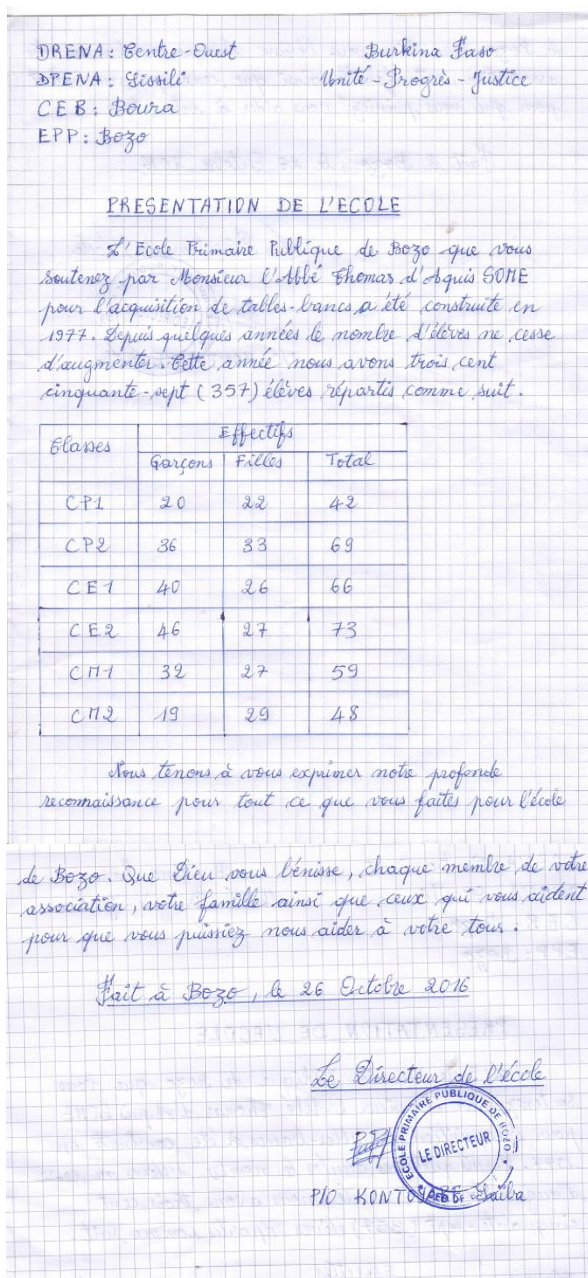 DRENA : Centre-Ouest Burkina Faso
DPENA : Sissili Unité - Progrès - Justice
CEB : Boura
EPP : Bozo
PRESENTATION DE L'ECOLE
L'Ecole Primaire Publique de Bozo que vous
soutenez par Monsieur l'Abbé Thomas d'Aquis SOME
pour l'acquisition de tables-bancs a été construite en
1977. Depuis quelques années le nombre d'élèves ne cesse
d'augmenter. Cette année nous avons trois cent
cinquante-sept (357) élèves répartis comme suit.
Classes Effectifs
Garçons Filles Total
CP1 20 22 42
CP2 36 33 69
CE1 40 26 66
CE2 46 27 73
CM1 32 27 59
CM2 19 29 48
Nous tenons à vous exprimer notre profonde
reconnaissance pour tout ce que vous faites pour l'école
de Bozo. Que Dieu vous bénisse, chaque membre de votre
association, votre famille ainsi que ceux qui vous aident
pour que vous puissiez nous aider à votre tour.
Fait à Bozo, le 26 Octobre 2016
Le Directeur de l'école
ECOLE PRIMAIRE PUBLIQUE DE BOZO
LE DIRECTEUR
P/O